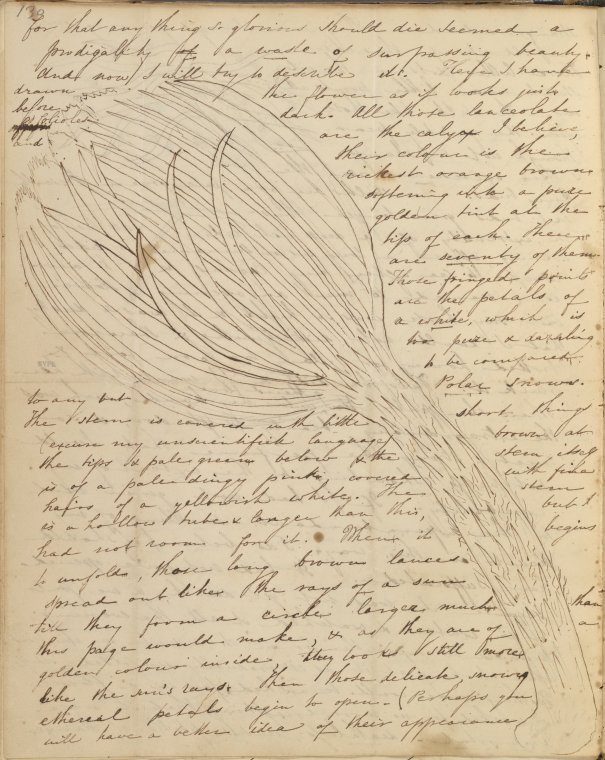 133
for that any thing so glorious should die seemed a
prodigality of a waste of surpassing beauty.
And now, I will try to describe it. Here I have
drawn the flower as it looks just
before dark. All those lanceolate
it folioles are the calyx I believe,
and their colour is the
richest orange brown
softening into a pure
golden tint at the
tips of each. There
are seventy of them.
Those fringed points
are the petals of
a white, which is
too pure & dazzling
to be compared
to any but Polar snows.
The stem is covered with little short things
(excuse my unscientifick language) brown at
the tips & pale green below & the stem itself
is of a pale dingy pink covered with fine
hairs of a yellowish white. The stem
is a hollow tube & longer than this but I
had not room for it. When it begins
to unfold, those long brown lances
spread out like the rays of a sun
till they form a circle larger much than
this page would make, & as they are of a
golden colour inside, they look still more
like the sun's rays. Then those delicate, snowy
ethereal petals begin to open. (Perhaps you
will have a better idea of their appearance